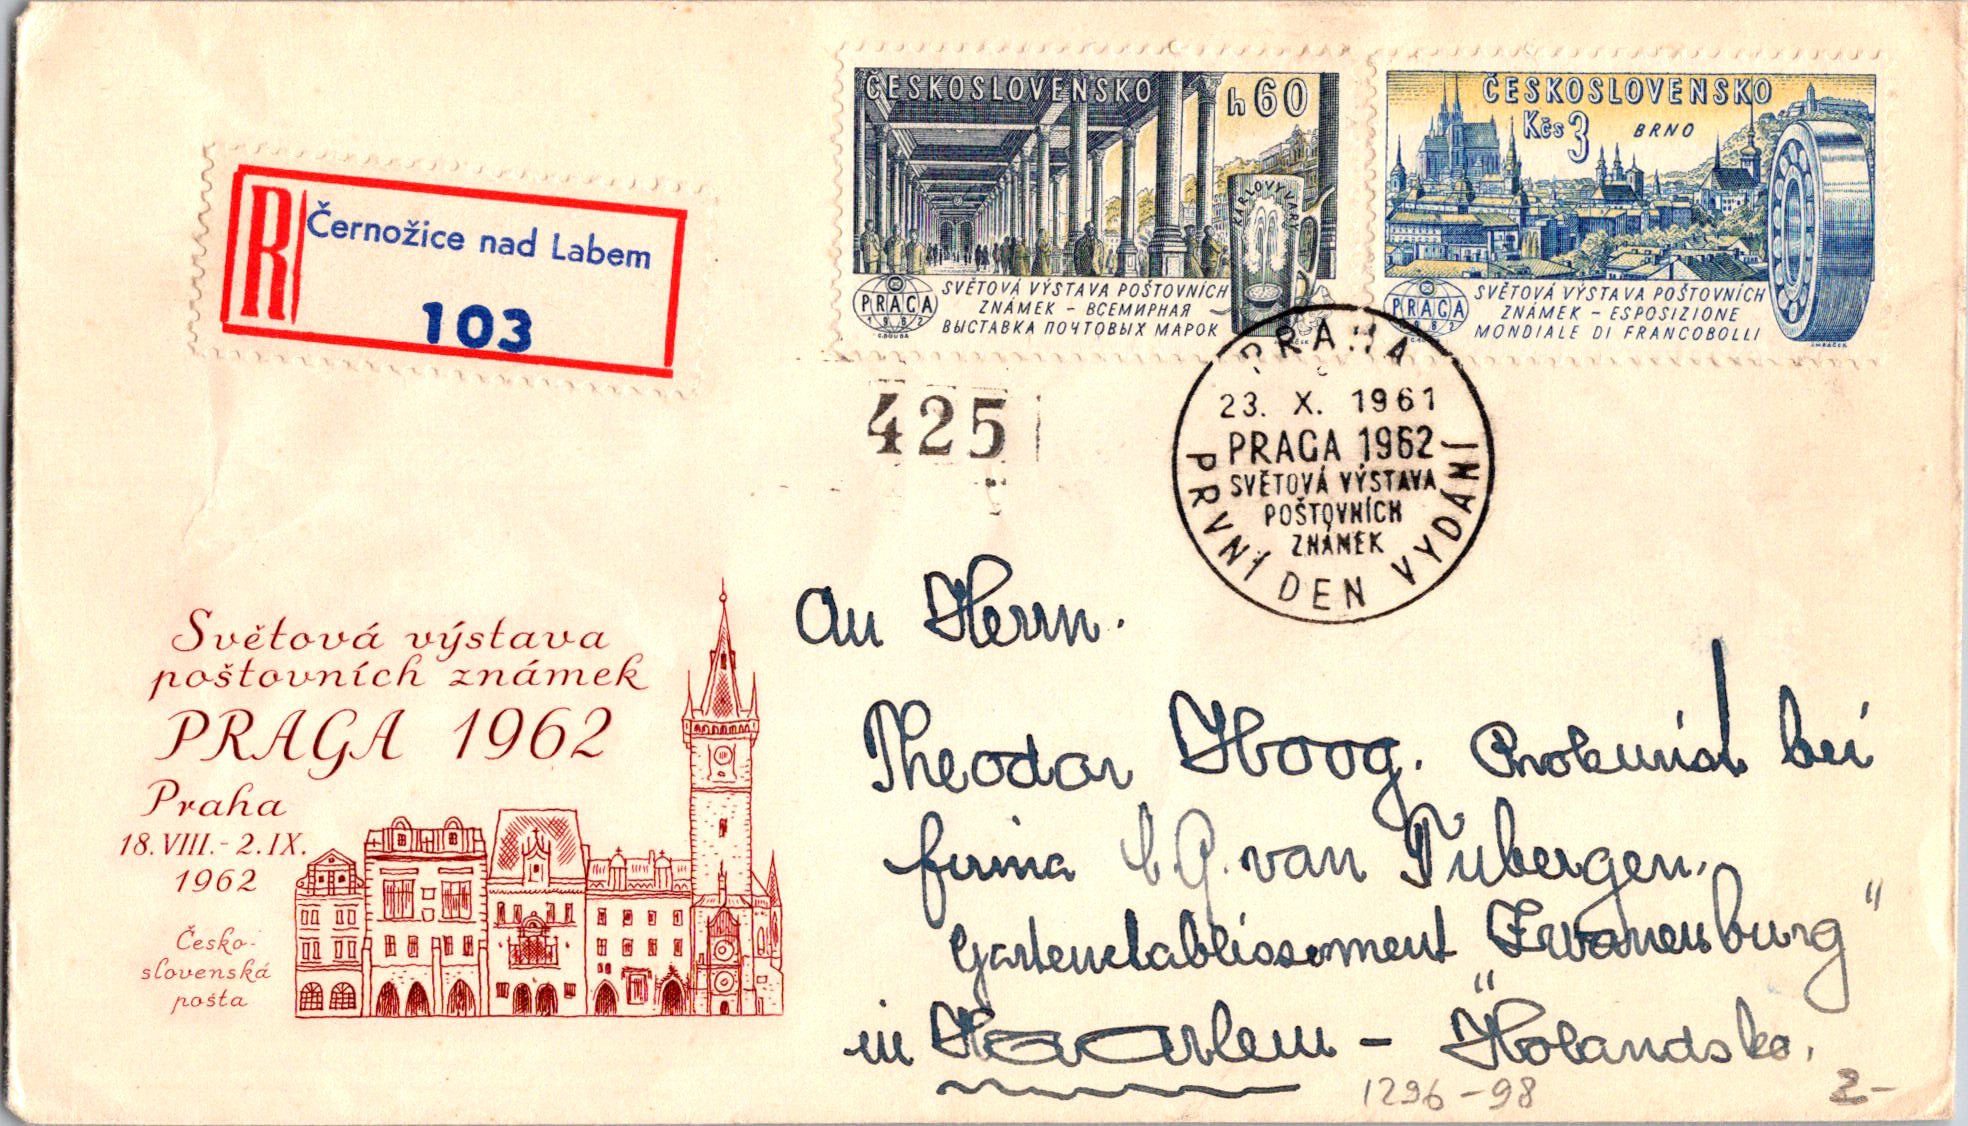 ČESKOSLOVENSKO
h 60
KARLOVY VARY
PRAGA
1962
SVĚTOVÁ VÝSTAVA POŠTOVNÍCH
ZNÁMEK – ВСЕМИРНАЯ
ВЫСТАВКА ПОЧТОВЫХ МАРОК
C. BOUDA
ČESKOSLOVENSKO
Kčs 3
BRNO
PRAGA
1962
SVĚTOVÁ VÝSTAVA POŠTOVNÍCH
ZNÁMEK – ESPOSIZIONE
MONDIALE DI FRANCOBOLLI
R
Černožice nad Labem
103
425
PRAHA
23. X. 1961
PRAGA 1962
SVĚTOVÁ VÝSTAVA
POŠTOVNÍCH
ZNÁMEK
PRVNÍ DEN VYDÁNÍ
Světová výstava
poštovních známek
PRAGA 1962
Praha
18. VIII. - 2. IX.
1962
Česko-
slovenská
pošta
An Herrn.
Theodor Hoog. Prokurist bei
firma C. G. van Tubergen,
Gartenetablissement „Zwanenburg"
in Haarlem – Holandsko.
1296-98
2-